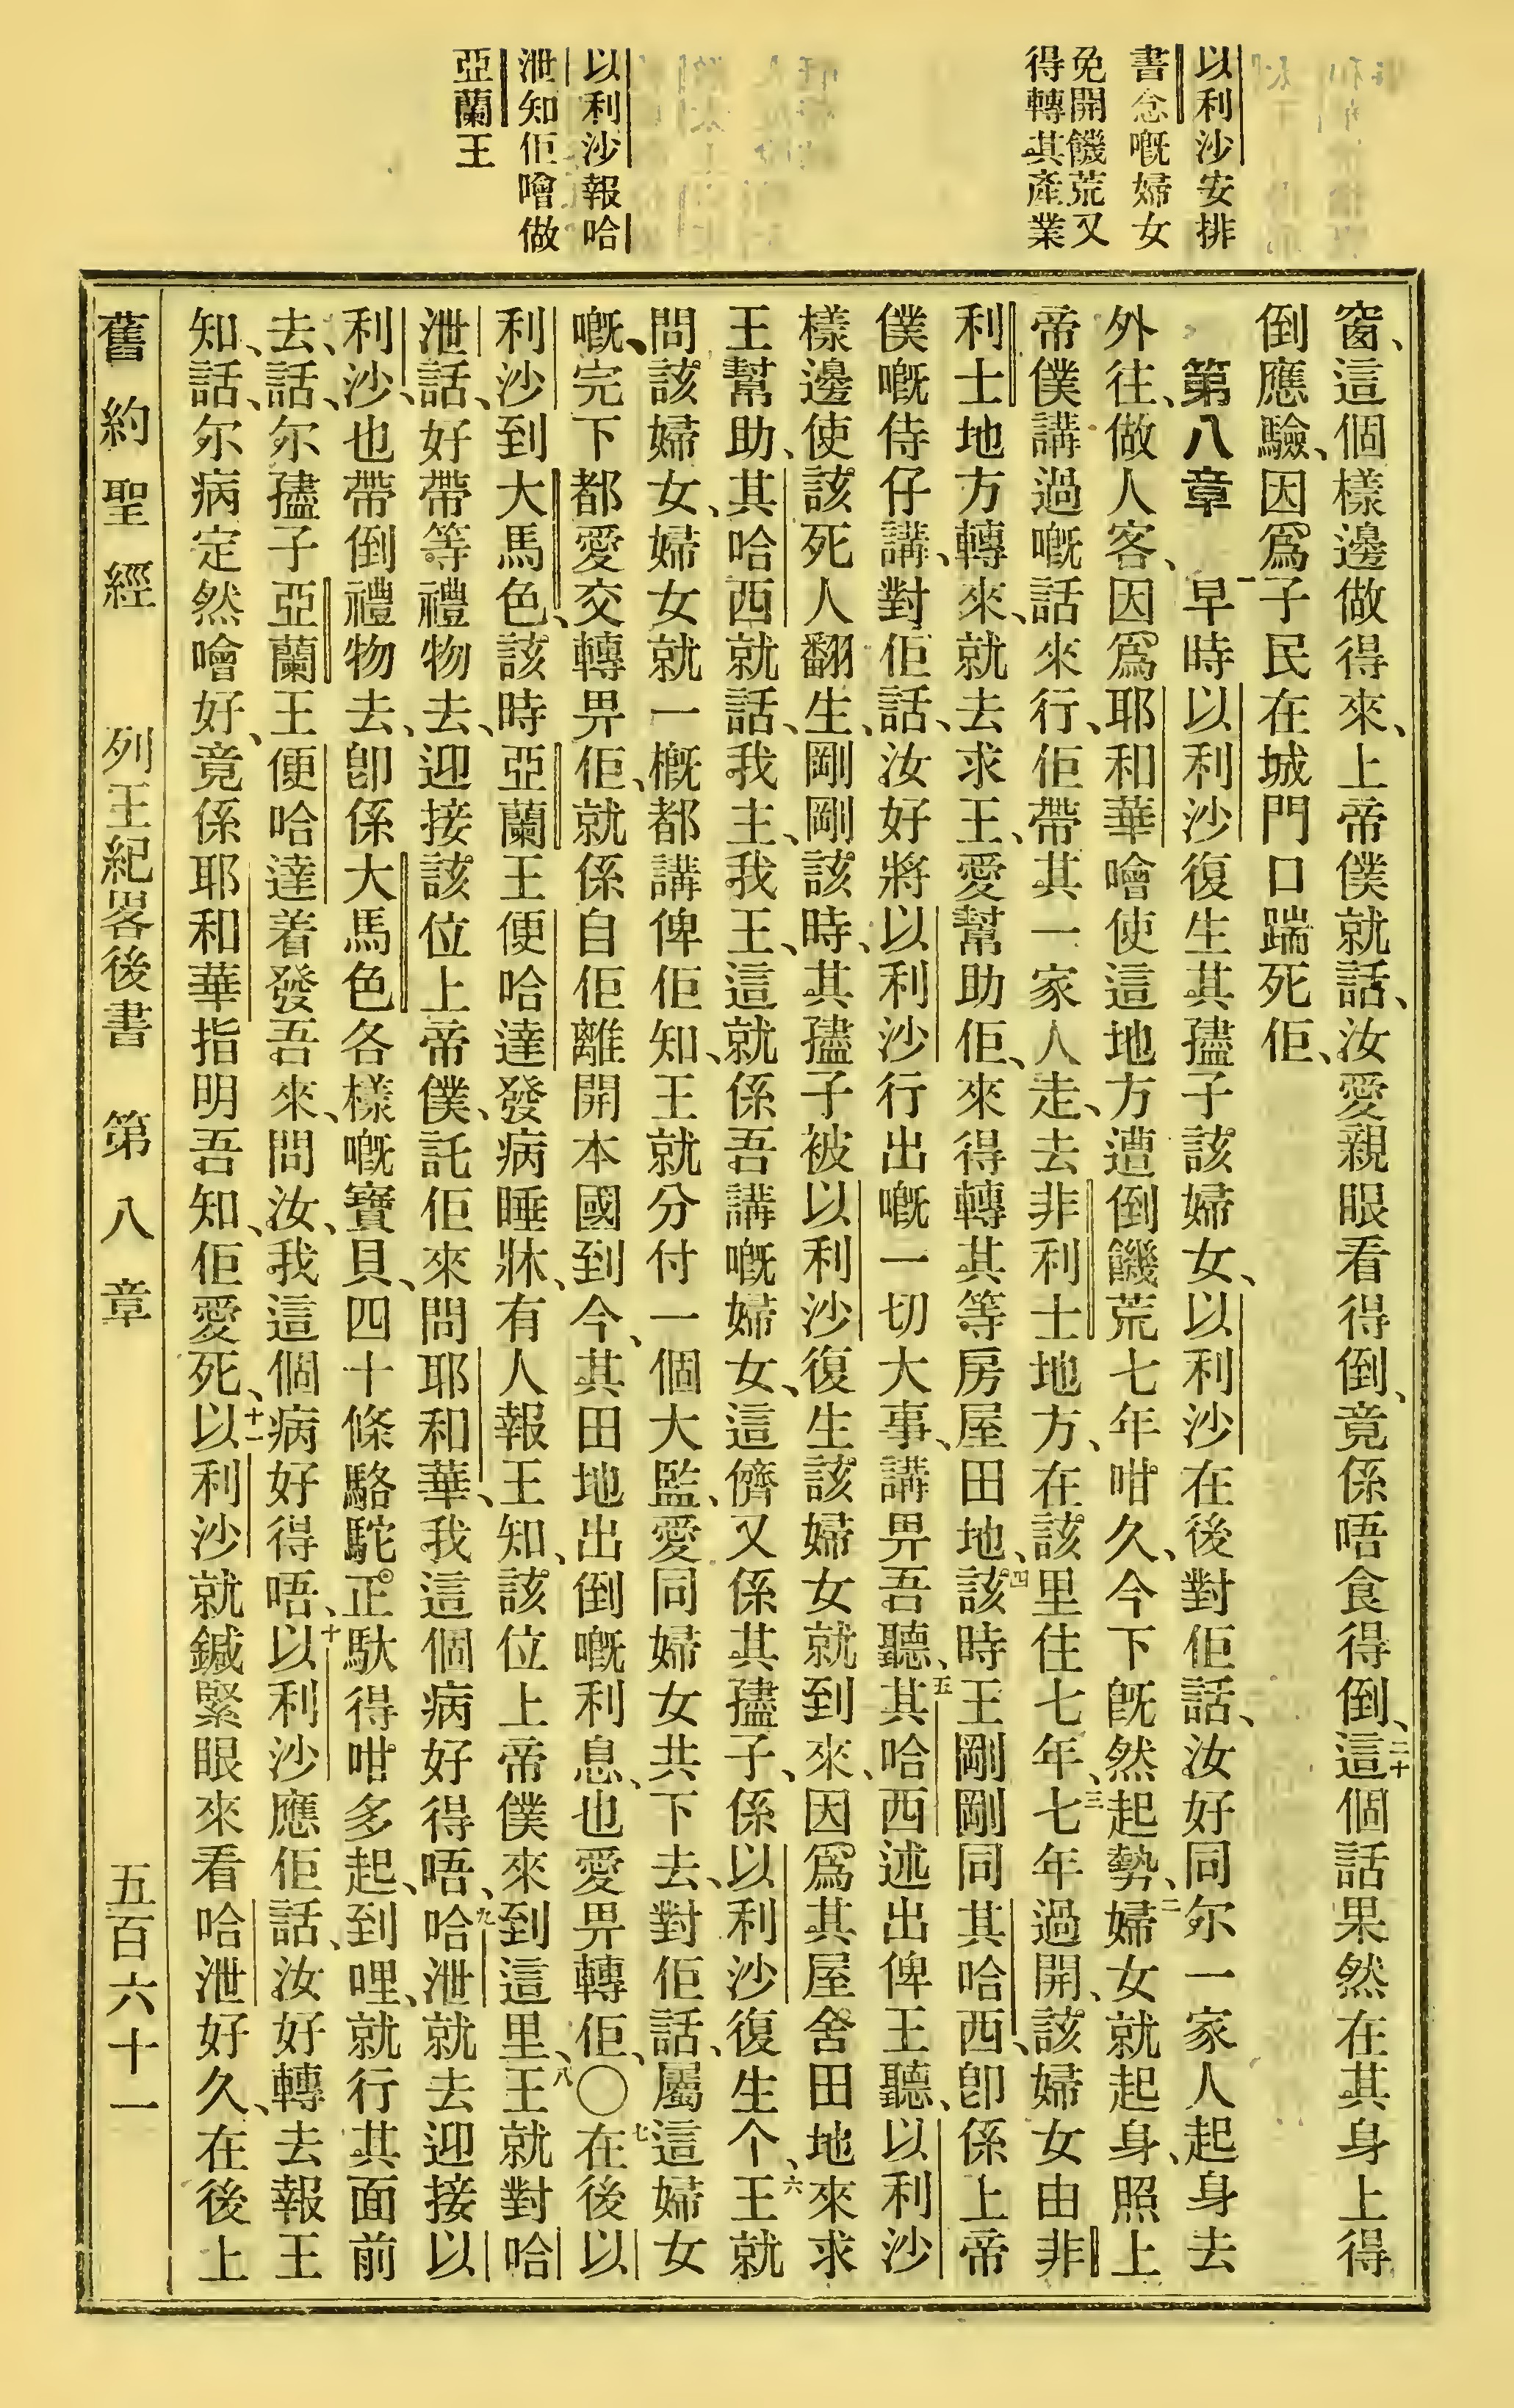 以利沙安排
書念嘅婦女
免開饑荒又
得轉其產業
以利沙報哈
泄知佢噲做
亞蘭王
窗、這個樣邊做得來、上帝僕就話、汝愛親眼看得倒、竟係唔食得倒、二十這個話果然在其身上得
倒應驗、因爲子民在城門口踹死佢、
第八章 一早時以利沙復生其孻子該婦女、以利沙在後對佢話、汝好同尔一家人起身去
外往、做人客、因爲耶和華噲使這地方遭倒饑荒七年咁久、今下旣然起勢、二婦女就起身、照上
帝僕講過嘅話來行、佢帶其一家人走、去非利士地方、在該里住七年、三七年過開、該婦女由非
利士地方轉來、就去求王、愛幫助佢、來得轉其等房屋田地、四該時王剛剛同其哈西、卽係上帝
僕嘅侍仔講、對佢話、汝好將以利沙行出嘅一切大事、講畀吾聽、五其哈西述出俾王聽、以利沙
樣邊使該死人翻生、剛剛該時、其孻子被以利沙復生該婦女就到來、因爲其屋舍田地來求
王幫助、其哈西就話、我主、我王、這就係吾講嘅婦女、這儕又係其孻子、係以利沙復生个、六王就
問該婦女、婦女就一概都講俾佢知、王就分付一個大監、愛同婦女共下去、對佢話、屬這婦女
嘅、完下都愛交轉畀佢、就係自佢離開本國到今、其田地出倒嘅利息、也愛畀轉佢、〇七在後以
利沙到大馬色、該時亞蘭王便哈達發病睡牀、有人報王知、該位上帝僕來到這里、八王就對哈
泄話、好帶等禮物去、迎接該位上帝僕、託佢來問耶和華、我這個病好得唔、九哈泄就去迎接以
利沙、也帶倒禮物去、卽係大馬色各樣嘅寶貝、四十條駱駝正馱得咁多起、到哩、就行其面前
去、話、尔孻子亞蘭王便哈達着發吾來、問汝、我這個病好得唔、十以利沙應佢話、汝好轉去報王
知、話、尔病定然噲好、竟係耶和華指明吾知、佢愛死、十一以利沙就鍼緊眼來看哈泄好久、在後上
舊約聖經 列王紀畧後書 第八章 五百六十一